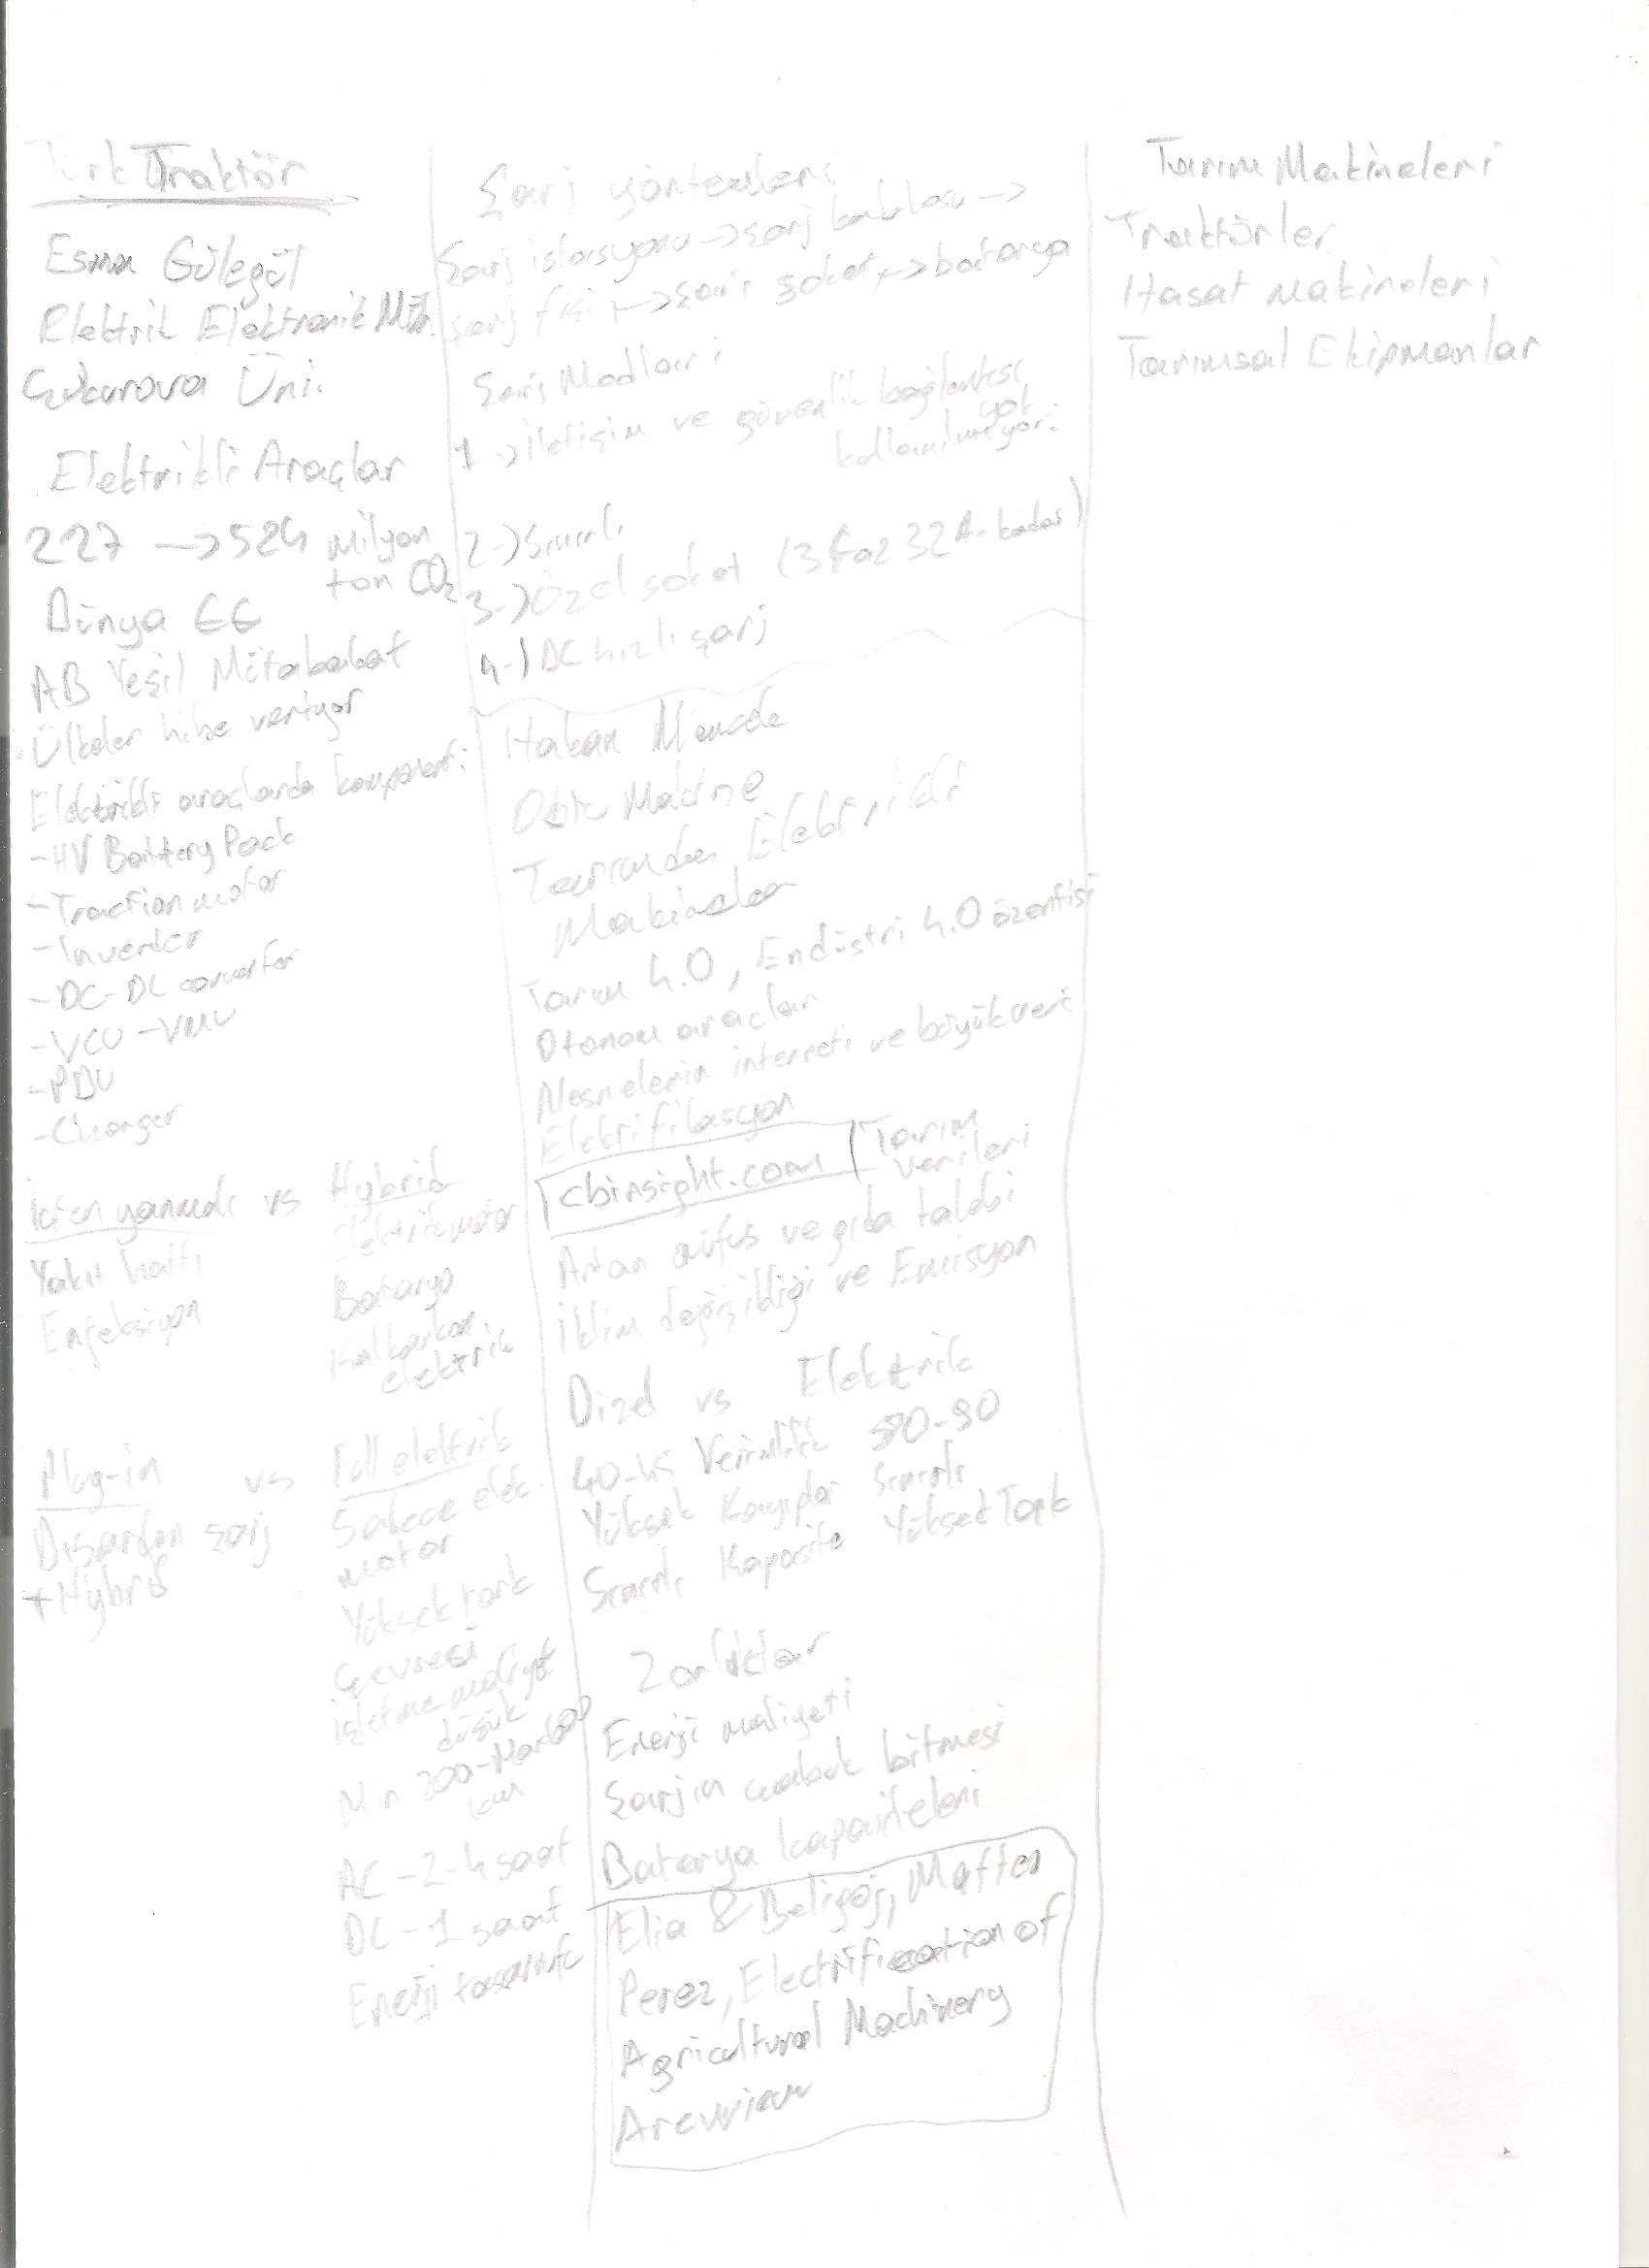 Türk Traktör
Esma Gülegül
Elektrik Elektronik Müh.
Çukurova Üni.
Elektrikli Araçlar
227 → 524 milyon
ton CO2
Dünya
AB Yeşil Mutabakat
Ülkeler hibe veriyor
Elektrikli araçlarda komponent:
- HV Battery Pack
- Traction motor
- Inverter
- DC-DC converter
- VCU - VMU
- PDU
- Charger
İçten yanmalı vs Hybrid
Yakıt hattı
Enjeksiyon
Elektrik motor
Batarya
Kalkarken
elektrik
Plug-in vs Full elektrik
Dışardan şarj
+ Hybrid
Sadece elek.
motor
Yüksek tork
Çevreci
işletme maliyet
düşük
Min 200-Max
km
AC - 2-4 saat
DC - 1 saat
Enerji tasarrufu
Şarj yöntemleri
Şarj istasyonu → şarj kablosu →
şarj fişi → şarj soket → batarya
Şarj Modları
1 → iletişim ve güvenlik bağlantısı
yok
kullanılmıyor.
2 → Sınırlı
3 → Özel soket (3 faz 32 A. kadar)
4 -) DC hızlı şarj
Hakan
Makine
Tarımda Elektrikli
Makineler
Tarım 4.0, Endüstri 4.0 özentisi
Otonom araçlar
Nesnelerin interneti ve büyük veri
Elektrifikasyon
cbinsight.com
Tarım
verileri
Artan nüfus ve gıda talebi
İklim değişikliği ve Emisyon
Dizel vs Elektrik
40-45 Verimlilik 90
Yüksek Kayıplar Sınırlı
Sınırlı Kapasite Yüksek Tork
Zorluklar
Enerji maliyeti
Şarjın çabuk bitmesi
Batarya kapasiteleri
Elia & Beligoj,
Perez, Electrification of
Agricultural Machinery
Tarım Makineleri
Traktörler
Hasat Makineleri
Tarımsal Ekipmanlar